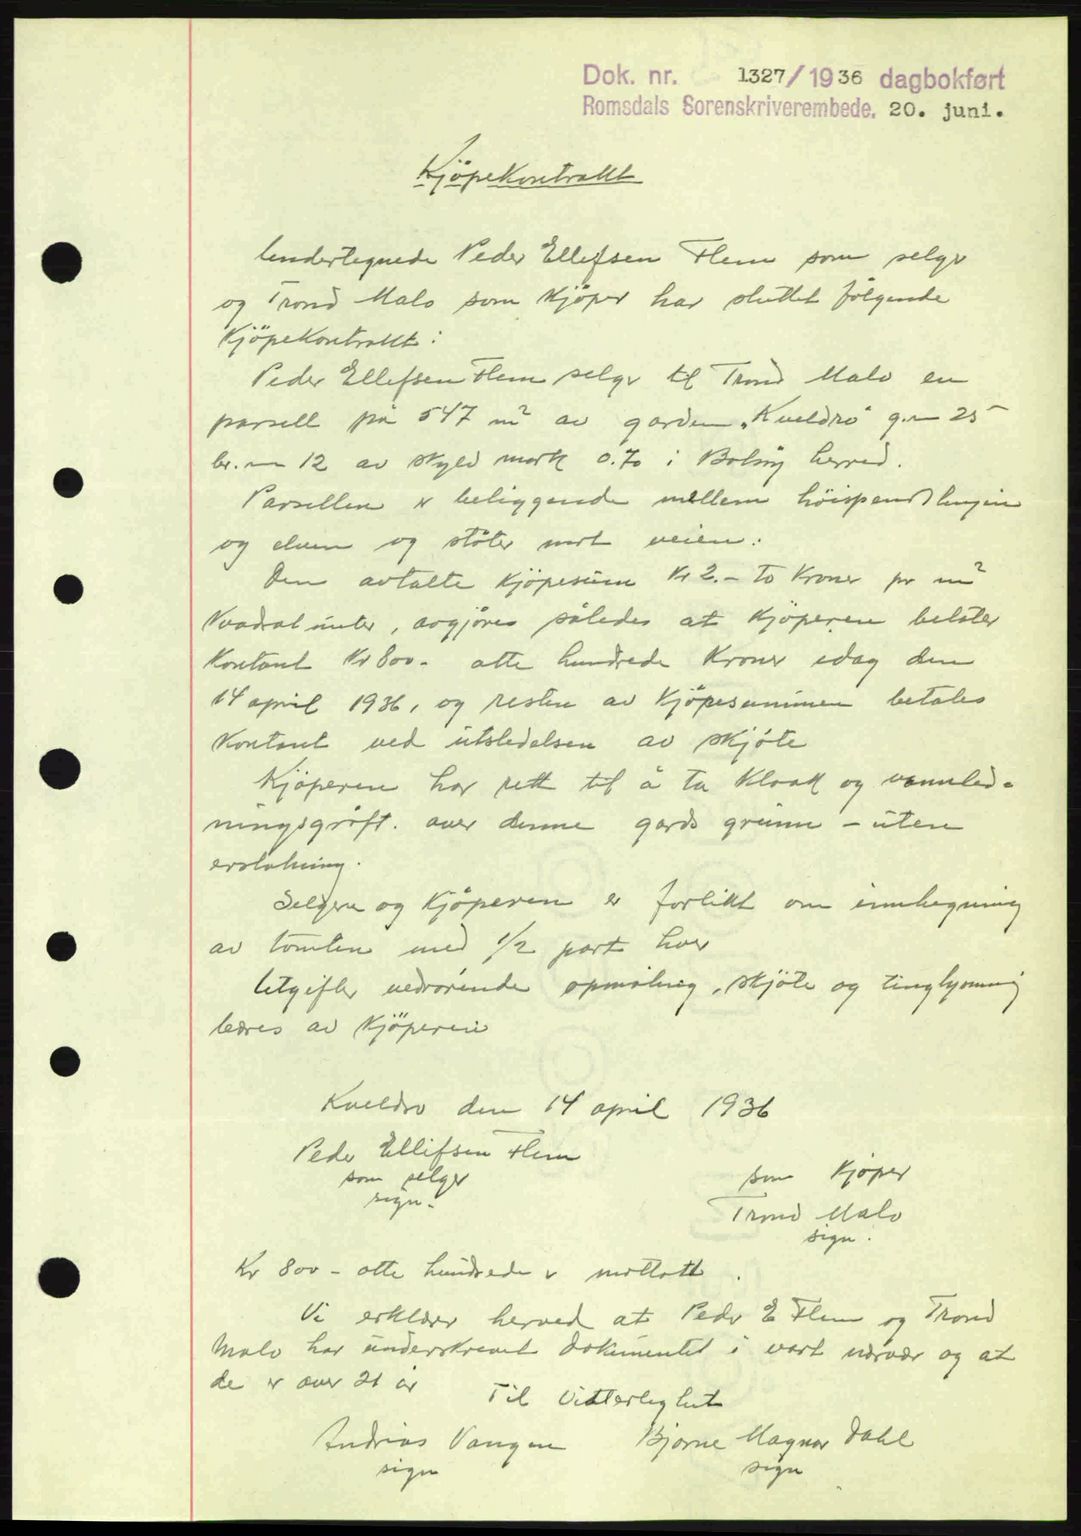 Dok. nr. 1327/1936 dagbokført
Romsdals Sorenskriverembede. 20. juni.
Kjöpekontrakt
Undertegnede Peder Ellefsen Flem som selger
og Trond Malo som kjöper har sluttet fölgende
kjöpekontrakt:
Peder Ellefsen Flem selger til Trond Malo en
parsell på 547 m² av garden „Kveldro" g.nr 25
br.nr 12 av skyld mark 0.70 i Bolsöy herred.
Parsellen er beliggende mellem höispendtlinjen
og elven og stöter mot veien.
Den avtalte kjöpesum Kr 2.- to kroner pr m²
kvadratmeter, avgjöres således at kjöperen betaler
kontant Kr 800- otte hundrede kroner idag den
14 april 1936, og resten av kjöpesummen betales
kontant ved utstedelsen av skjöte
Kjöperen har rett til å ta kloakk og vannled-
ningsgröft. over denne gards grunn - uten
erstatning.
Selgeren og kjöperen er forlikt om innhegning
av tomten med 1/2 part hver
Utgifter vedrörende opmåling, skjöte og tinglysning
bæres av kjöperen
Kveldro den 14 april 1936
Peder Ellifsen Flem
som selger
sign.
som kjöper
Trond Malo
sign.
Kr 800 - otte hundrede er mottatt.
Vi erklærer herved at Peder E Flem og Trond
Malo har underskrevet dokumentet i vort nærvær og at
de er over 21 år
Til Vitterlighet
Andrias Vangen Bjarne Magnar Dahl
sign sign